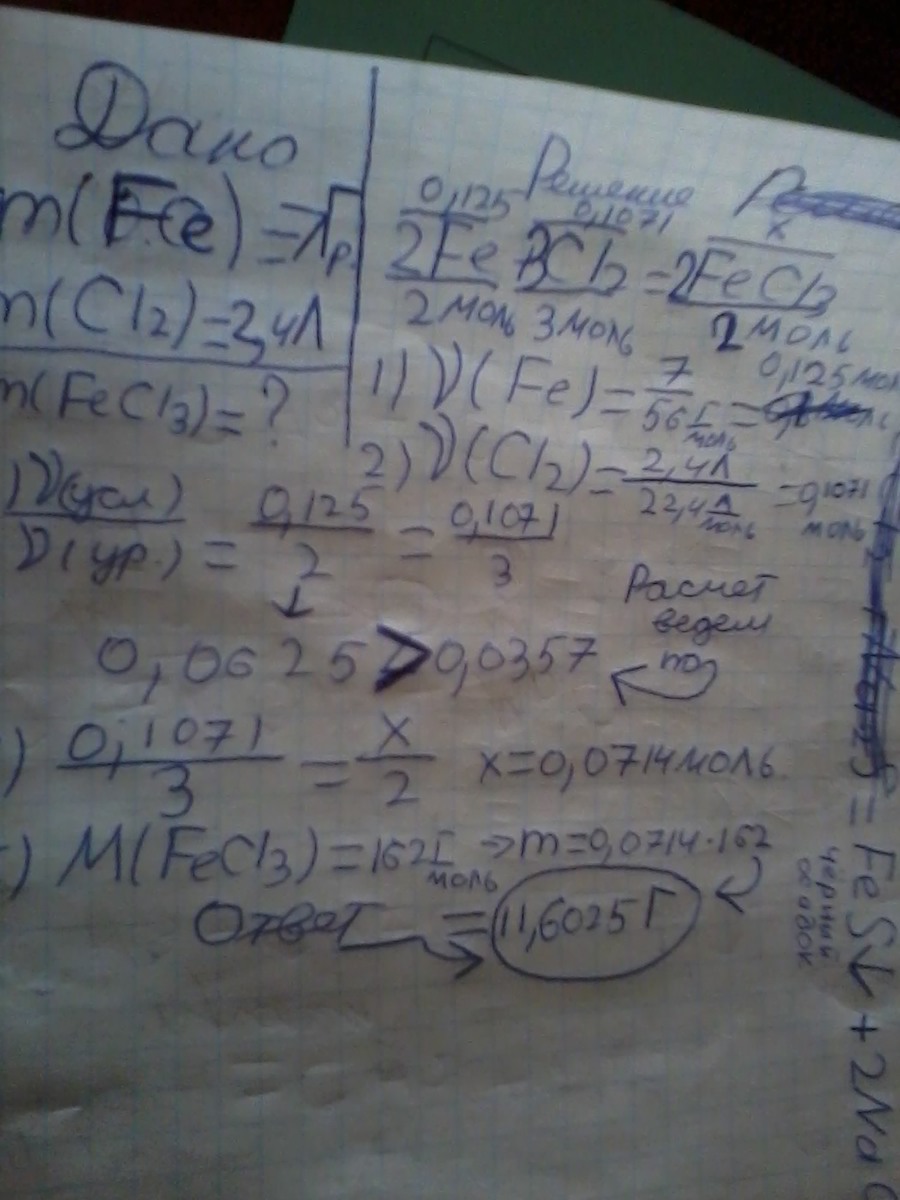 Дано
m(Fe)=7гр.
m(Cl2)=2,4л
m(FeCl3)=?
Решение
0,125 0,1071 x
2Fe 3Cl2=2FeCl3
2моль 3моль 2моль
1) ν(Fe)=7/56 г/моль=0,125мол
2) ν(Cl2)=2,4л/22,4 л/моль=0,1071 моль
)ν(усл)/ν(ур.)=0,125/2=0,1071/3
↓
0,0625>0,0357
Расчет
ведем
по
) 0,1071/3=x/2 x=0,0714моль
) M(FeCl3)=162г/моль→m=0,0714·162
Ответ =11,6025г
=FeS↓+2Na
чёрный
осадок